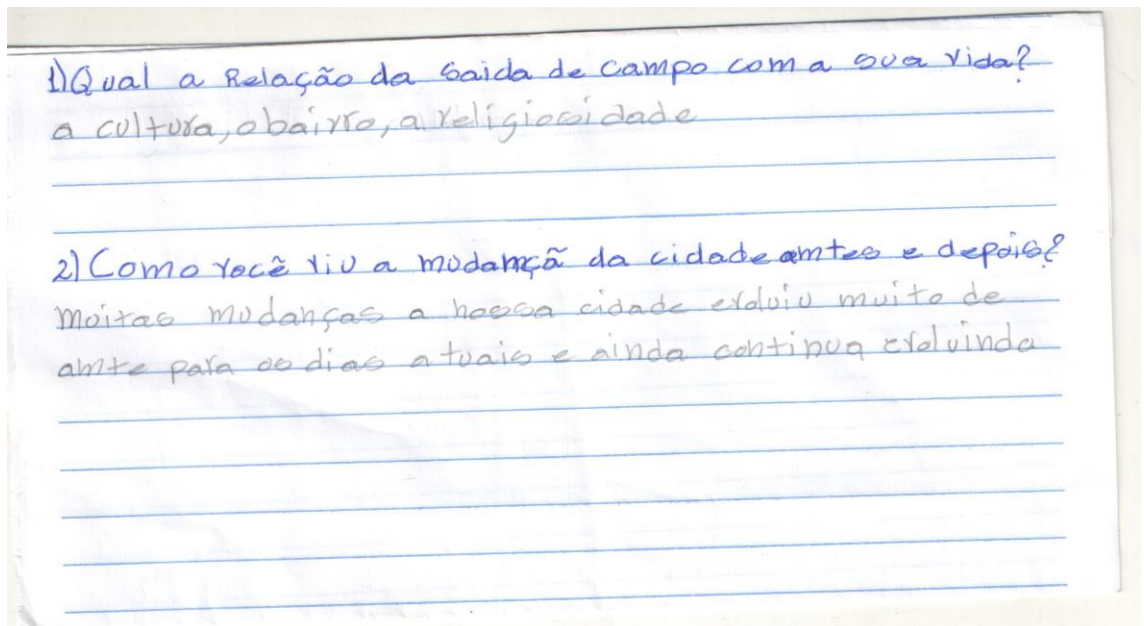 1) Qual a Relação da saida de campo com a sua vida?
a cultura, o bairro, a religiosidade
2) Como você viu a mudamçã da cidade amtes e depois?
moitas mudanças a nossa cidade evoluiu muito de
amte para os dias atuais e ainda continua evoluinda